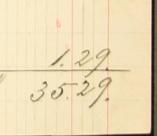 1.29.
35.29.